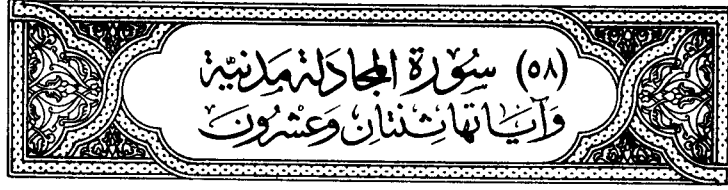 (٥٨) سُورَة المجَادلة مَدنيّة
وَآيَاتها ثِنتَانِ وَعشْرُونَ